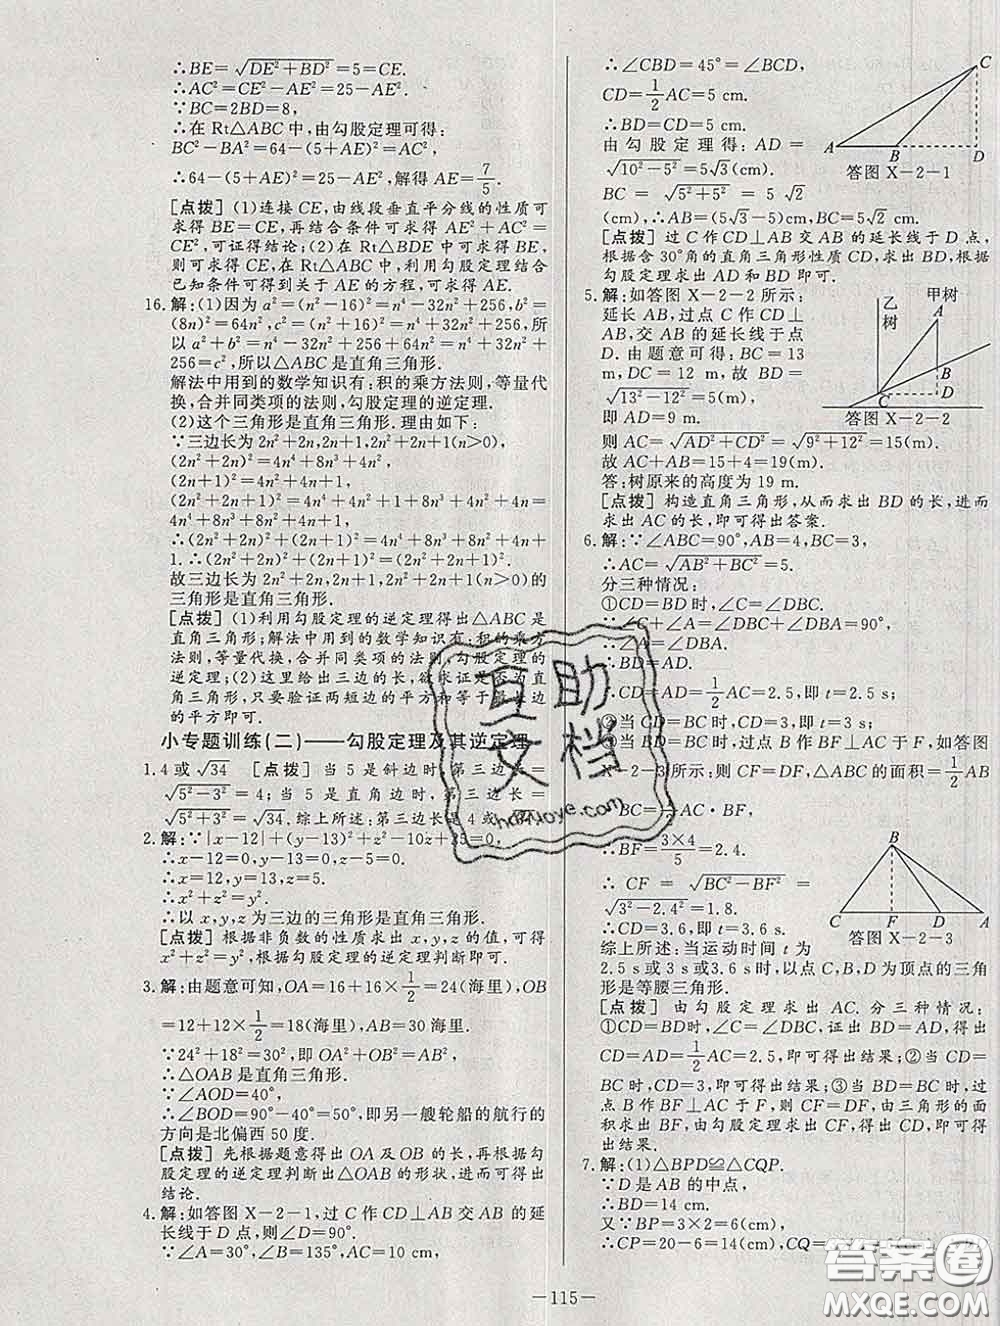 ∴BE=√(DE²+BD²)=5=CE.
∴AC²=CE²-AE²=25-AE².
∵BC=2BD=8,
∴在 Rt△ABC 中,由勾股定理可得:
BC²-BA²=64-(5+AE)²=AC²,
∴64-(5+AE)²=25-AE²,解得 AE=7/5.
[点拨] (1)连接 CE,由线段垂直平分线的性质可
求得 BE=CE,再结合条件可求得 AE²+AC²=
CE²,可证得结论;(2)在 Rt△BDE 中可求得 BE,
则可求得 CE,在 Rt△ABC 中,利用勾股定理结合
已知条件可得到关于 AE 的方程,可求得 AE.
16.解:(1)因为 a²=(n²-16)²=n⁴-32n²+256,b²=
(8n)²=64n²,c²=(n²+16)²=n⁴+32n²+256,所
以 a²+b²=n⁴-32n²+256+64n²=n⁴+32n²
+256=c²,所以△ABC 是直角三角形.
解法中用到的数学知识有:积的乘方法则,等量代
换,合并同类项的法则,勾股定理的逆定理.
(2)这个三角形是直角三角形.理由如下:
∵三边长为 2n²+2n,2n+1,2n²+2n+1(n>0),
(2n²+2n)²=4n⁴+8n³+4n²,
(2n+1)²=4n²+4n+1,
(2n²+2n+1)²=4n⁴+4n²+1+8n³+4n²+4n=
4n⁴+8n³+8n²+4n+1,
∴(2n²+2n)²+(2n+1)²=4n⁴+8n³+8n²+4n+
1.∴(2n²+2n)²+(2n+1)²=(2n²+2n+1)².
故三边长为 2n²+2n,2n+1,2n²+2n+1(n>0)的
三角形是直角三角形.
[点拨] (1)利用勾股定理的逆定理得出△ABC 是
直角三角形;解法中用到的数学知识有:积的乘方
法则,等量代换,合并同类项的法则,勾股定理的
逆定理;(2)这里给出三边的长,欲求证是否为直
角三角形,只要验证两短边的平方和等于最长边
的平方即可.
小专题训练(二)——勾股定理及其逆定理
1.4 或√34 [点拨] 当 5 是斜边时,第三边长=
√(5²-3²)=4;当 5 是直角边时,第三边长=
√(5²+3²)=√34.综上所述:第三边长是 4 或√34.
2.解:∵|x-12|+(y-13)²+z²-10z+25=0,
∴x-12=0,y-13=0,z-5=0.
∴x=12,y=13,z=5.
∴x²+z²=y².
∴以 x,y,z 为三边的三角形是直角三角形.
[点拨] 根据非负数的性质求出 x,y,z 的值,可得
x²+z²=y²,根据勾股定理的逆定理判断即可.
3.解:由题意可知,OA=16+16×1/2=24(海里),OB
=12+12×1/2=18(海里),AB=30 海里.
∵24²+18²=30²,即 OA²+OB²=AB²,
∴△OAB 是直角三角形.
∵∠AOD=40°,
∴∠BOD=90°-40°=50°,即另一艘轮船的航行的
方向是北偏西 50 度.
[点拨] 先根据题意得出 OA 及 OB 的长,再根据勾
股定理的逆定理判断出△OAB 的形状,进而可得出
结论.
4.解:如答图 X-2-1,过 C 作 CD⊥AB 交 AB 的延
长线于 D 点,则∠D=90°.
∵∠A=30°,∠B=135°,AC=10 cm,
∴∠CBD=45°=∠BCD,
CD=1/2AC=5 cm.
∴BD=CD=5 cm.
由勾股定理得: AD =
√(10²-5²)=5√3(cm).
BC = √(5²+5²) = 5√2
(cm),∴AB=(5√3-5)cm,BC=5√2 cm.
A B D C
答图 X-2-1
[点拨] 过 C 作 CD⊥AB 交 AB 的延长线于 D 点,
根据含 30°角的直角三角形性质 CD,求出 BD,根据
勾股定理求出 AD 和 BD 即可.
5.解:如答图 X-2-2 所示:
延长 AB,过点 C 作 CD⊥
AB,交 AB 的延长线于点
D.由题意可得:BC=13
m,DC=12 m,故 BD=
√(13²-12²)=5(m).
即 AD=9 m.
乙树 甲树
A B C D
答图 X-2-2
则 AC=√(AD²+CD²)=√(9²+12²)=15(m).
故 AC+AB=15+4=19(m).
答:树原来的高度为 19 m.
[点拨] 构造直角三角形,从而求出 BD 的长,进而
求出 AC 的长,即可得出答案.
6.解:∵∠ABC=90°,AB=4,BC=3,
∴AC=√(AB²+BC²)=5.
分三种情况:
①CD=BD 时,∠C=∠DBC.
∵∠C+∠A=∠DBC+∠DBA=90°,
∴∠A=∠DBA.
∴BD=AD.
∴CD=AD=1/2AC=2.5,即 t=2.5 s;
②当 CD=BC 时,CD=3,即 t=3 s;
③当 BD=BC 时,过点 B 作 BF⊥AC 于 F,如答图
X-2-3 所示:则 CF=DF,△ABC 的面积=1/2AB
·BC=1/2AC·BF,
∴BF=(3×4)/5=2.4.
∴ CF = √(BC²-BF²) =
√(3²-2.4²)=1.8.
∴CD=3.6,即 t=3.6 s.
B C F D A
答图 X-2-3
综上所述:当运动时间 t 为
2.5 s或3 s或3.6 s时,以点 C,B,D 为顶点的三角
形是等腰三角形.
[点拨] 由勾股定理求出 AC.分三种情况:
①CD=BD 时,∠C=∠DBC,证出 BD=AD,得出
CD=AD=1/2AC=2.5,即可得出结果;②当 CD=
BC 时,CD=3,即可得出结果;③当 BD=BC 时,过
点 B 作 BF⊥AC 于 F,则 CF=DF,由三角形的面
积求出 BF,由勾股定理求出 CF,得出 CD,即可得
出结果.
7.解:(1)△BPD≌△CQP.
∵D 是 AB 的中点,
∴BD=14 cm.
又∵BP=3×2=6(cm),
∴CP=20-6=14(cm),CQ=
—115—
互助文档
答案圈
MXQE.COM